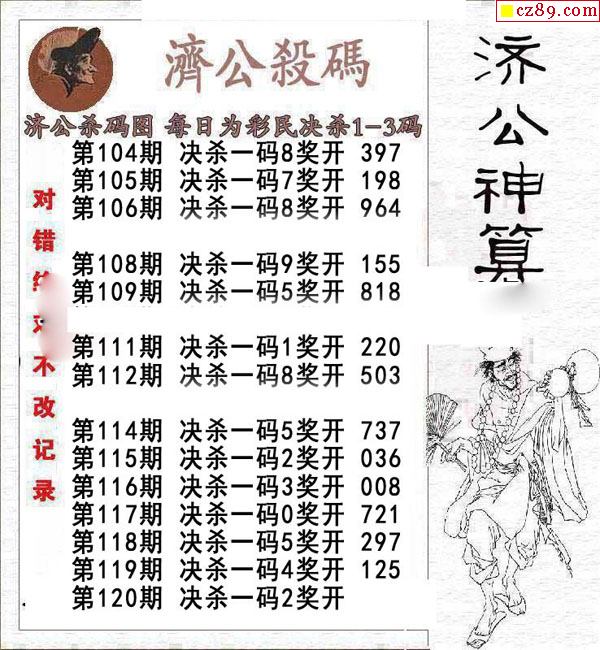 cz89.com
濟公殺碼
济公杀码图 每日为彩民决杀1-3码
第104期 决杀一码8奖开 397
第105期 决杀一码7奖开 198
第106期 决杀一码8奖开 964
第108期 决杀一码9奖开 155
第109期 决杀一码5奖开 818
第111期 决杀一码1奖开 220
第112期 决杀一码8奖开 503
第114期 决杀一码5奖开 737
第115期 决杀一码2奖开 036
第116期 决杀一码3奖开 008
第117期 决杀一码0奖开 721
第118期 决杀一码5奖开 297
第119期 决杀一码4奖开 125
第120期 决杀一码2奖开
对错 不改记录
济公神算